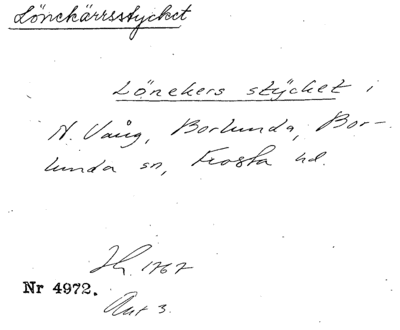 Lönekärrsstycket
Lönekers stÿcket i
N. Vång, Borlunda, Bor-
lunda sn, Frosta hd.
1767
Nr 4972.
Akt 3.